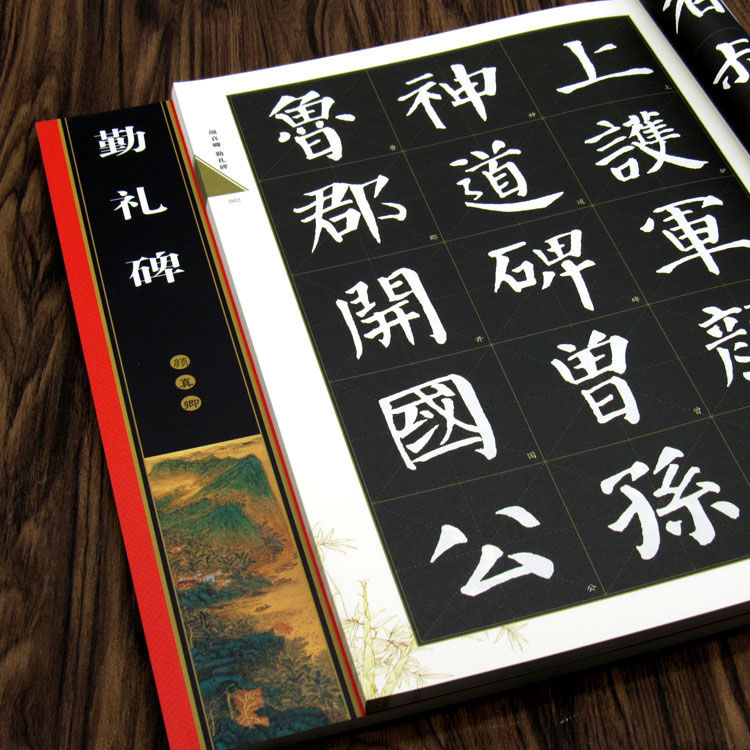 勤礼碑
颜真卿
颜真卿 勤礼碑
002
上護軍
神道碑曾孫
魯郡開國公
上护
神道碑曾
鲁郡开国公